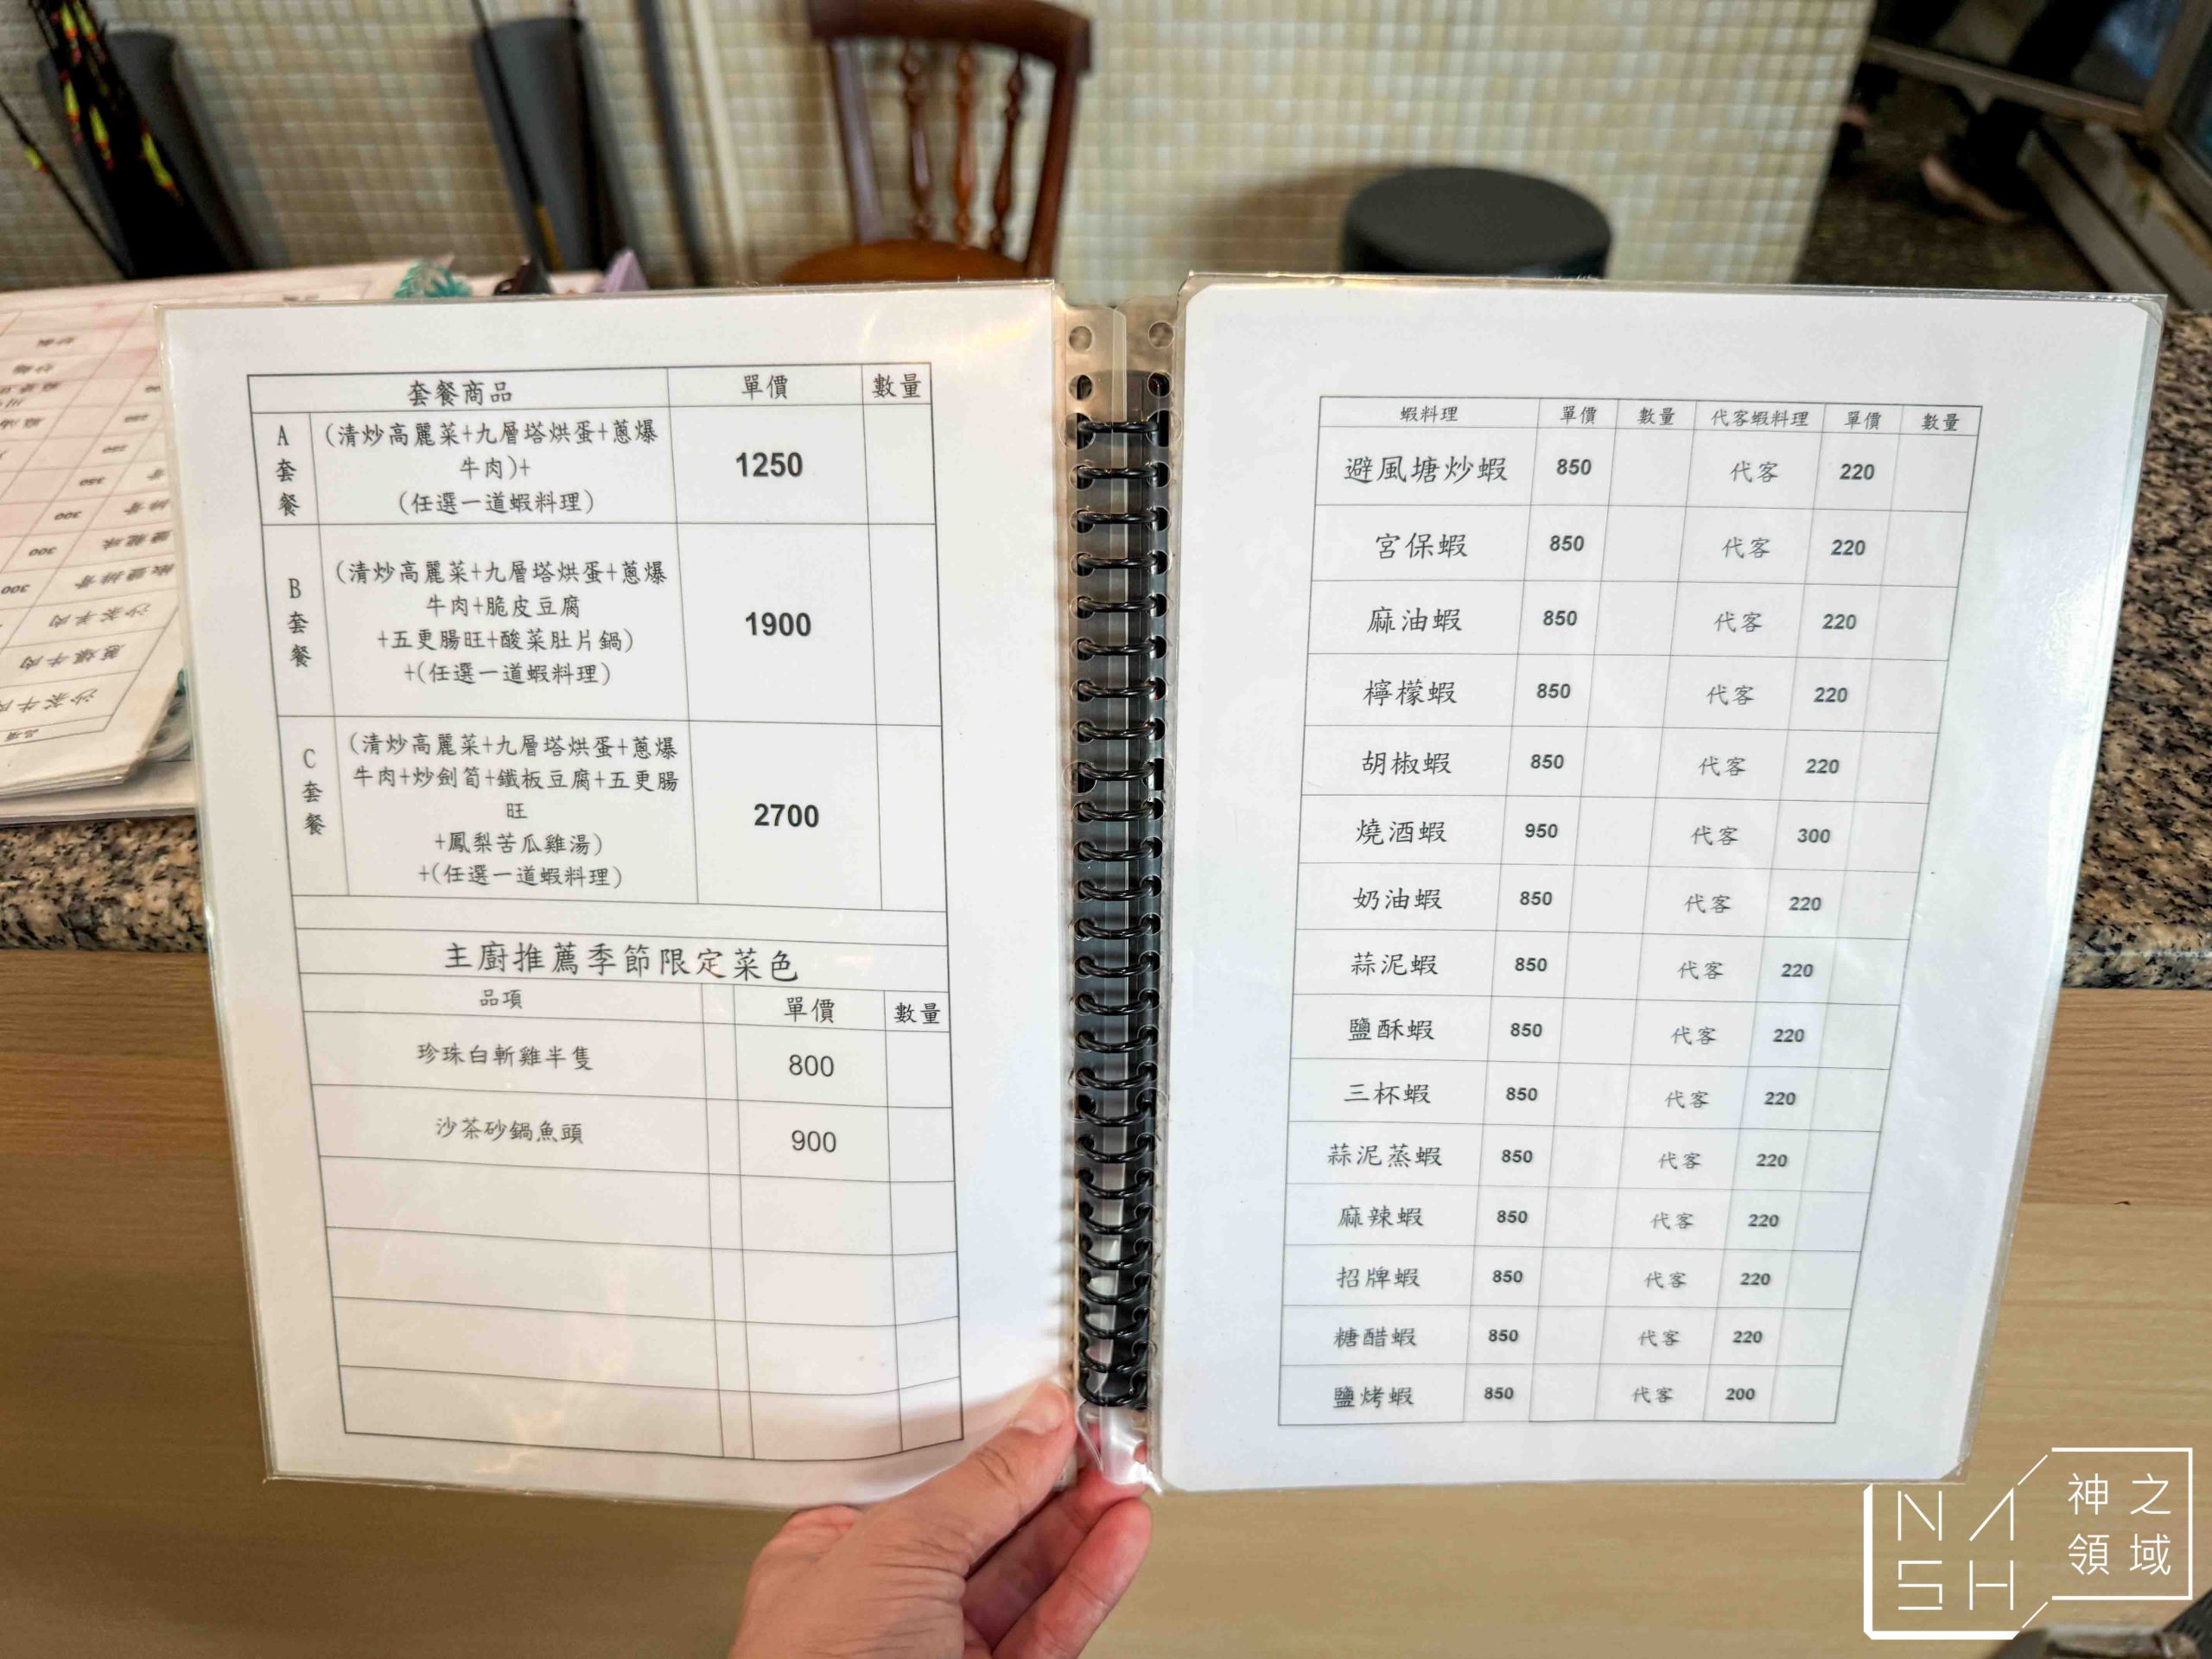 套餐商品 單價 數量
A套餐
(清炒高麗菜+九層塔烘蛋+蔥爆
牛肉)+
(任選一道蝦料理)
1250
B套餐
(清炒高麗菜+九層塔烘蛋+蔥爆
牛肉+脆皮豆腐
+五更腸旺+酸菜肚片鍋)
+(任選一道蝦料理)
1900
C套餐
(清炒高麗菜+九層塔烘蛋+蔥爆
牛肉+炒劍筍+鐵板豆腐+五更腸
旺
+鳳梨苦瓜雞湯)
+(任選一道蝦料理)
2700
主廚推薦季節限定菜色
品項 單價 數量
珍珠白斬雞半隻 800
沙茶砂鍋魚頭 900
蝦料理 單價 數量 代客蝦料理 單價 數量
避風塘炒蝦 850 代客 220
宮保蝦 850 代客 220
麻油蝦 850 代客 220
檸檬蝦 850 代客 220
胡椒蝦 850 代客 220
燒酒蝦 950 代客 300
奶油蝦 850 代客 220
蒜泥蝦 850 代客 220
鹽酥蝦 850 代客 220
三杯蝦 850 代客 220
蒜泥蒸蝦 850 代客 220
麻辣蝦 850 代客 220
招牌蝦 850 代客 220
糖醋蝦 850 代客 220
鹽烤蝦 850 代客 200
沙茶牛肉
蔥爆牛肉
椒鹽排骨 300
300
300
品項
NASH
神之
領域